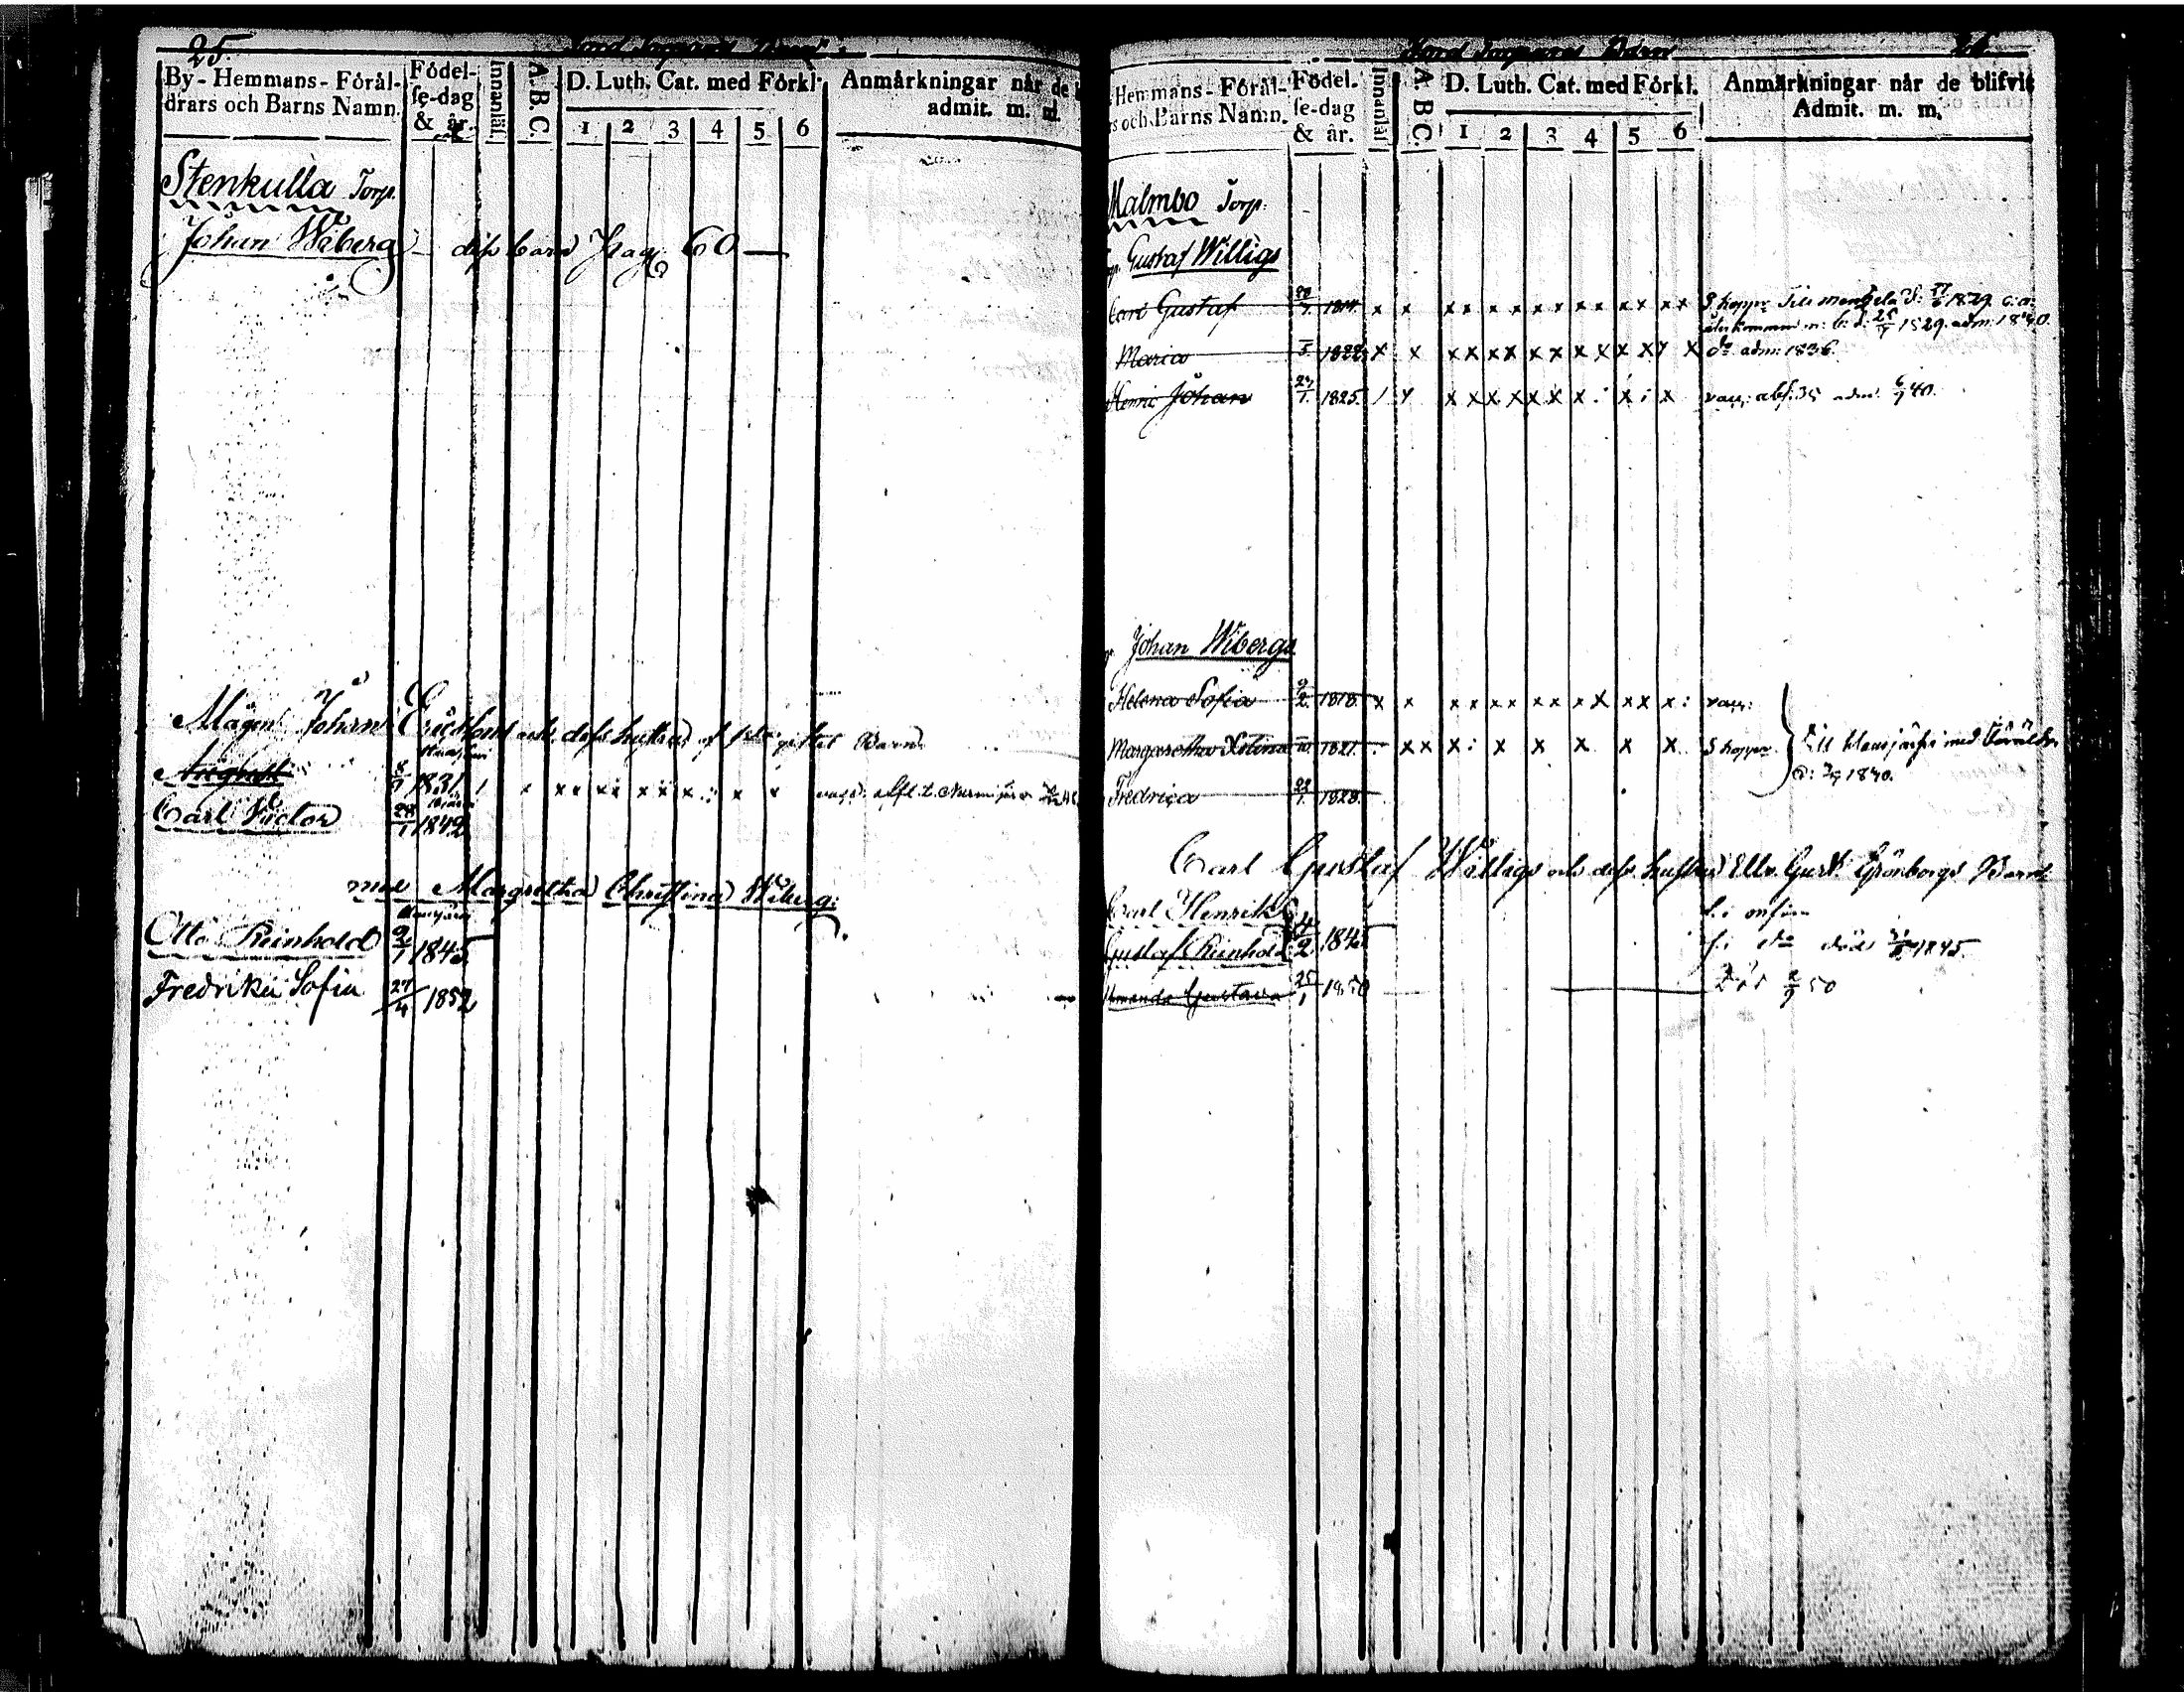 25.
By - Hemmans - Förål-
drars och Barns Namn.
Födel-
se-dag
& år.
Innanläs.
A.B.C.
D. Luth. Cat. med Förkl.
1 2 3 4 5 6
Anmärkningar når de
admit. m. m.
Stenkulla Torp.
Johan Wiberg - dess barn Pag 60 —
Mågen Johan Ericssons och dess hustrus Barn
August 8/9 1831 / x xx xx xx x.: x x
Carl Victor 28/1 1842
med Margretha Christina Wiberg:
Otto Reinhold 9/1 1845
Fredrika Sofia 27/4 1852
Hemmans - Förål-
och Barns Namn.
Födel-
se-dag
& år.
Innanläs
A. B C.
D. Luth. Cat. med Förkl.
1 2 3 4 5 6
Anmärkningar når de blifvit
Admit. m. m.
Malmbo Torp.
Gustaf Willigs
Carl Gustaf 1814 x x xx xx xx xx xx xx S. koppr. 1829
1829. adm: 1840.
Maria 1822 x x xx xx xx xx xx x do adm: 1836.
Henric Johan 27/1 1825. / x xx xx xx x: x: x vacc: adm. 6/7 40.
Johan Wibergs
Helena Sofia 9/2 1818. x x xx xx xx xx xx x: vacc:
Margaretha Kristina 1821. - xx x: x x x x x S koppr. till med Föräldr.
1840.
Fredrica 1828.
Carl Gustaf Willigs och dess hustrus Barn
Carl Henrik
Gustaf Reinhold 4/2 1845 do död 1845.
Amanda Gustava 25/1 1850 Död 2/9 50